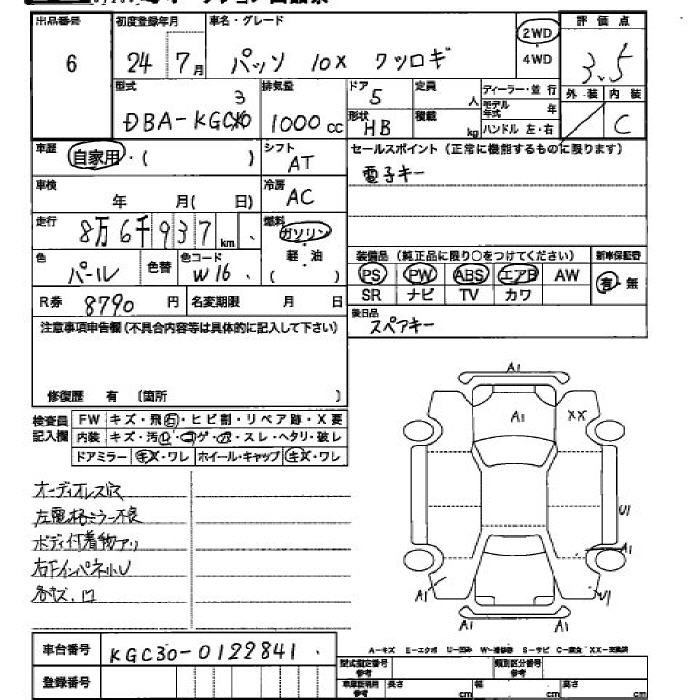 出品番号 初度登録年月 車名・グレード 評価点
6 24年7月 パッソ 10X クツロギ 2WD・4WD 3.5
型式 排気量 ドア 5 定員 人 ディーラー・並行 外装 内装
DBA-KGC30 3 1000cc 形状 HB 積載 kg モデル年式 年 C
ハンドル 左・右
車歴 自家用・( ) シフト AT セールスポイント(正常に機能するものに限ります)
電子キー
車検 年 月( 日) 冷房 AC
走行 8万6千937km 燃料 ガソリン・軽油 ( )
色 パール 色替 色コード W16 装備品(純正品に限り○をつけてください) 新車保証書
PS PW ABS エアB AW 有・無
SR ナビ TV カワ
R券 8790円 名変期限 月 日 後日品
スペアキー
注意事項申告欄(不具合内容等は具体的に記入して下さい)
修復歴 有 〔箇所 〕
検査員記入欄 FW キズ・飛石・ヒビ割・リペア跡・X要
内装 キズ・汚 ・ ゲ・ ・スレ・ヘタリ・破レ
ドアミラー キズ・ワレ ホイール・キャップ キズ・ワレ
オーディオレス穴
左電格ミラー不良
ボディ付着物アリ
右Fインパネ小U
A1
A1
XX
U1
A1
A1
U1
A1
A1
車台番号 KGC30-0122841
登録番号
A-キズ E-エクボ U-凹み W-補修跡 S-サビ C-腐食 XX-交換済
型式指定番号 参考 類別区分番号 参考
車庫証明用 参考 長さ cm 幅 cm 高さ cm